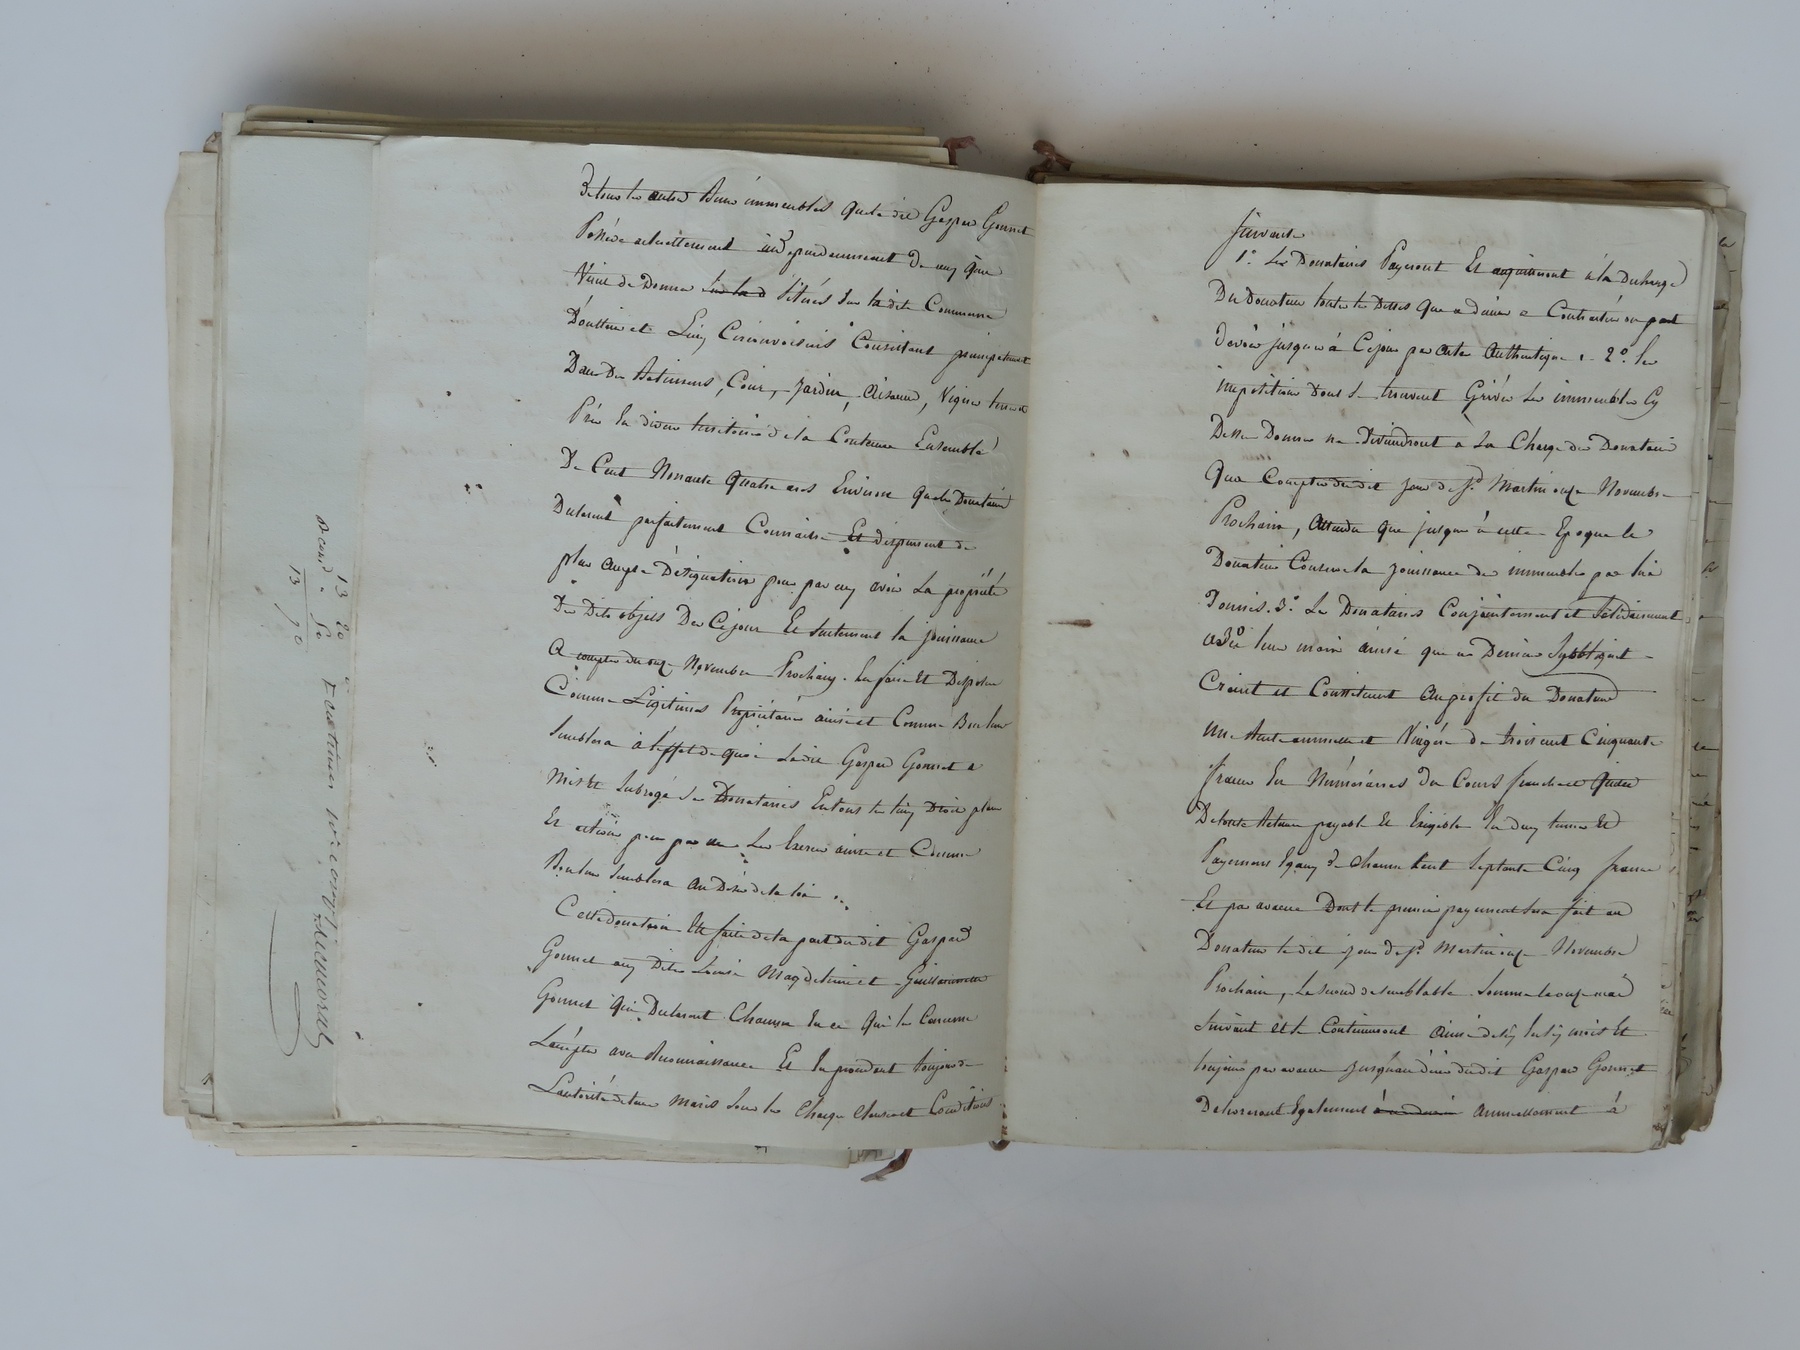 De tous les autres Biens immeubles que le dit Gaspar Gonnet
Possede actuellement indépendamment de ceux que
Vient de Donner situés Sur la dite Commune
et Lieux Circonvoisins Consistant principalement
Dans Des Batiments, Cour, Jardin, Aisances, Vignes terres et
Prés En divers territoires de la Contenance Ensemble
De Cent Nonante Quatre ares Environ que les Donataires
Declarent parfaitement Connaitre Et dispensent de
plus ample Désignation pour par eux avoir La propriété
Des Dits objets Des Ce jour Et Seulement la jouissance
A compter du onze Novembre Prochain. En faire Et Disposer
Comme Legitimes Propriétaires ainsi et Comme Bon leur
Semblera à l'effet de quoi Le dit Gaspar Gonnet a
Mis Et Subrogé les Donataires En tous Droits plein
Et actions pour par eux Les Exercer ainsi et Comme
Bon leur Semblera au Désir de la loi
Cette donation Est faite de la part du dit Gaspard
Gonnet aux Dites Louise Magdelaine et Guillaumette
Gonnet qui Declarent Chacune En ce Qui les Concerne
L'accepter avec Reconnaissance Et En procédant toujours de
L'autorité de leurs Maris Sous les Charges Clauses et Conditions
13 20
Reçu
13 70
Suivantes
1.° Les Donataires Payeront Et acquitteront à la Decharge
Du Donateur toutes les Dettes que ce dernier a Contractées ou peut
devoir jusqu'à Ce jour par acte Authentique. 2.° les
impositions Dont Se trouvent Grévés Les immeubles Cy
Dessus Donnés ne Deviendront a La Charge des Donataires
Qua Compter du dit jour de St Martin onze Novembre
Prochain, Attendu que jusqu'à cette Epoque le
Donateur Conserve la jouissance des immeubles par lui
Donnés. 3.° Les Donataires Conjointement et Solidairement
avec leurs maris ainsi que ces Derniers S'y obligent
Créent et Constituent Au profit du Donateur
une Rente annuelle et Viagére de trois cent Cinquante
francs En Numéraires du Cours franche et Quitte
De toute Retenue payable Et Exigible En deux termes Et
Payements Egaux de Chacun Cent Septante Cinq francs
Et par avance Dont le premier payement Sera fait au
Donateur le dit jour de St Martin onze Novembre
Prochain, Le Second de semblable Somme le onze mai
Suivant et Se Continueront ainsi de Six En Six mois Et
toujours par avance jusqu'au décès du dit Gaspar Gonnet
Delivreront Egalement annuellement à